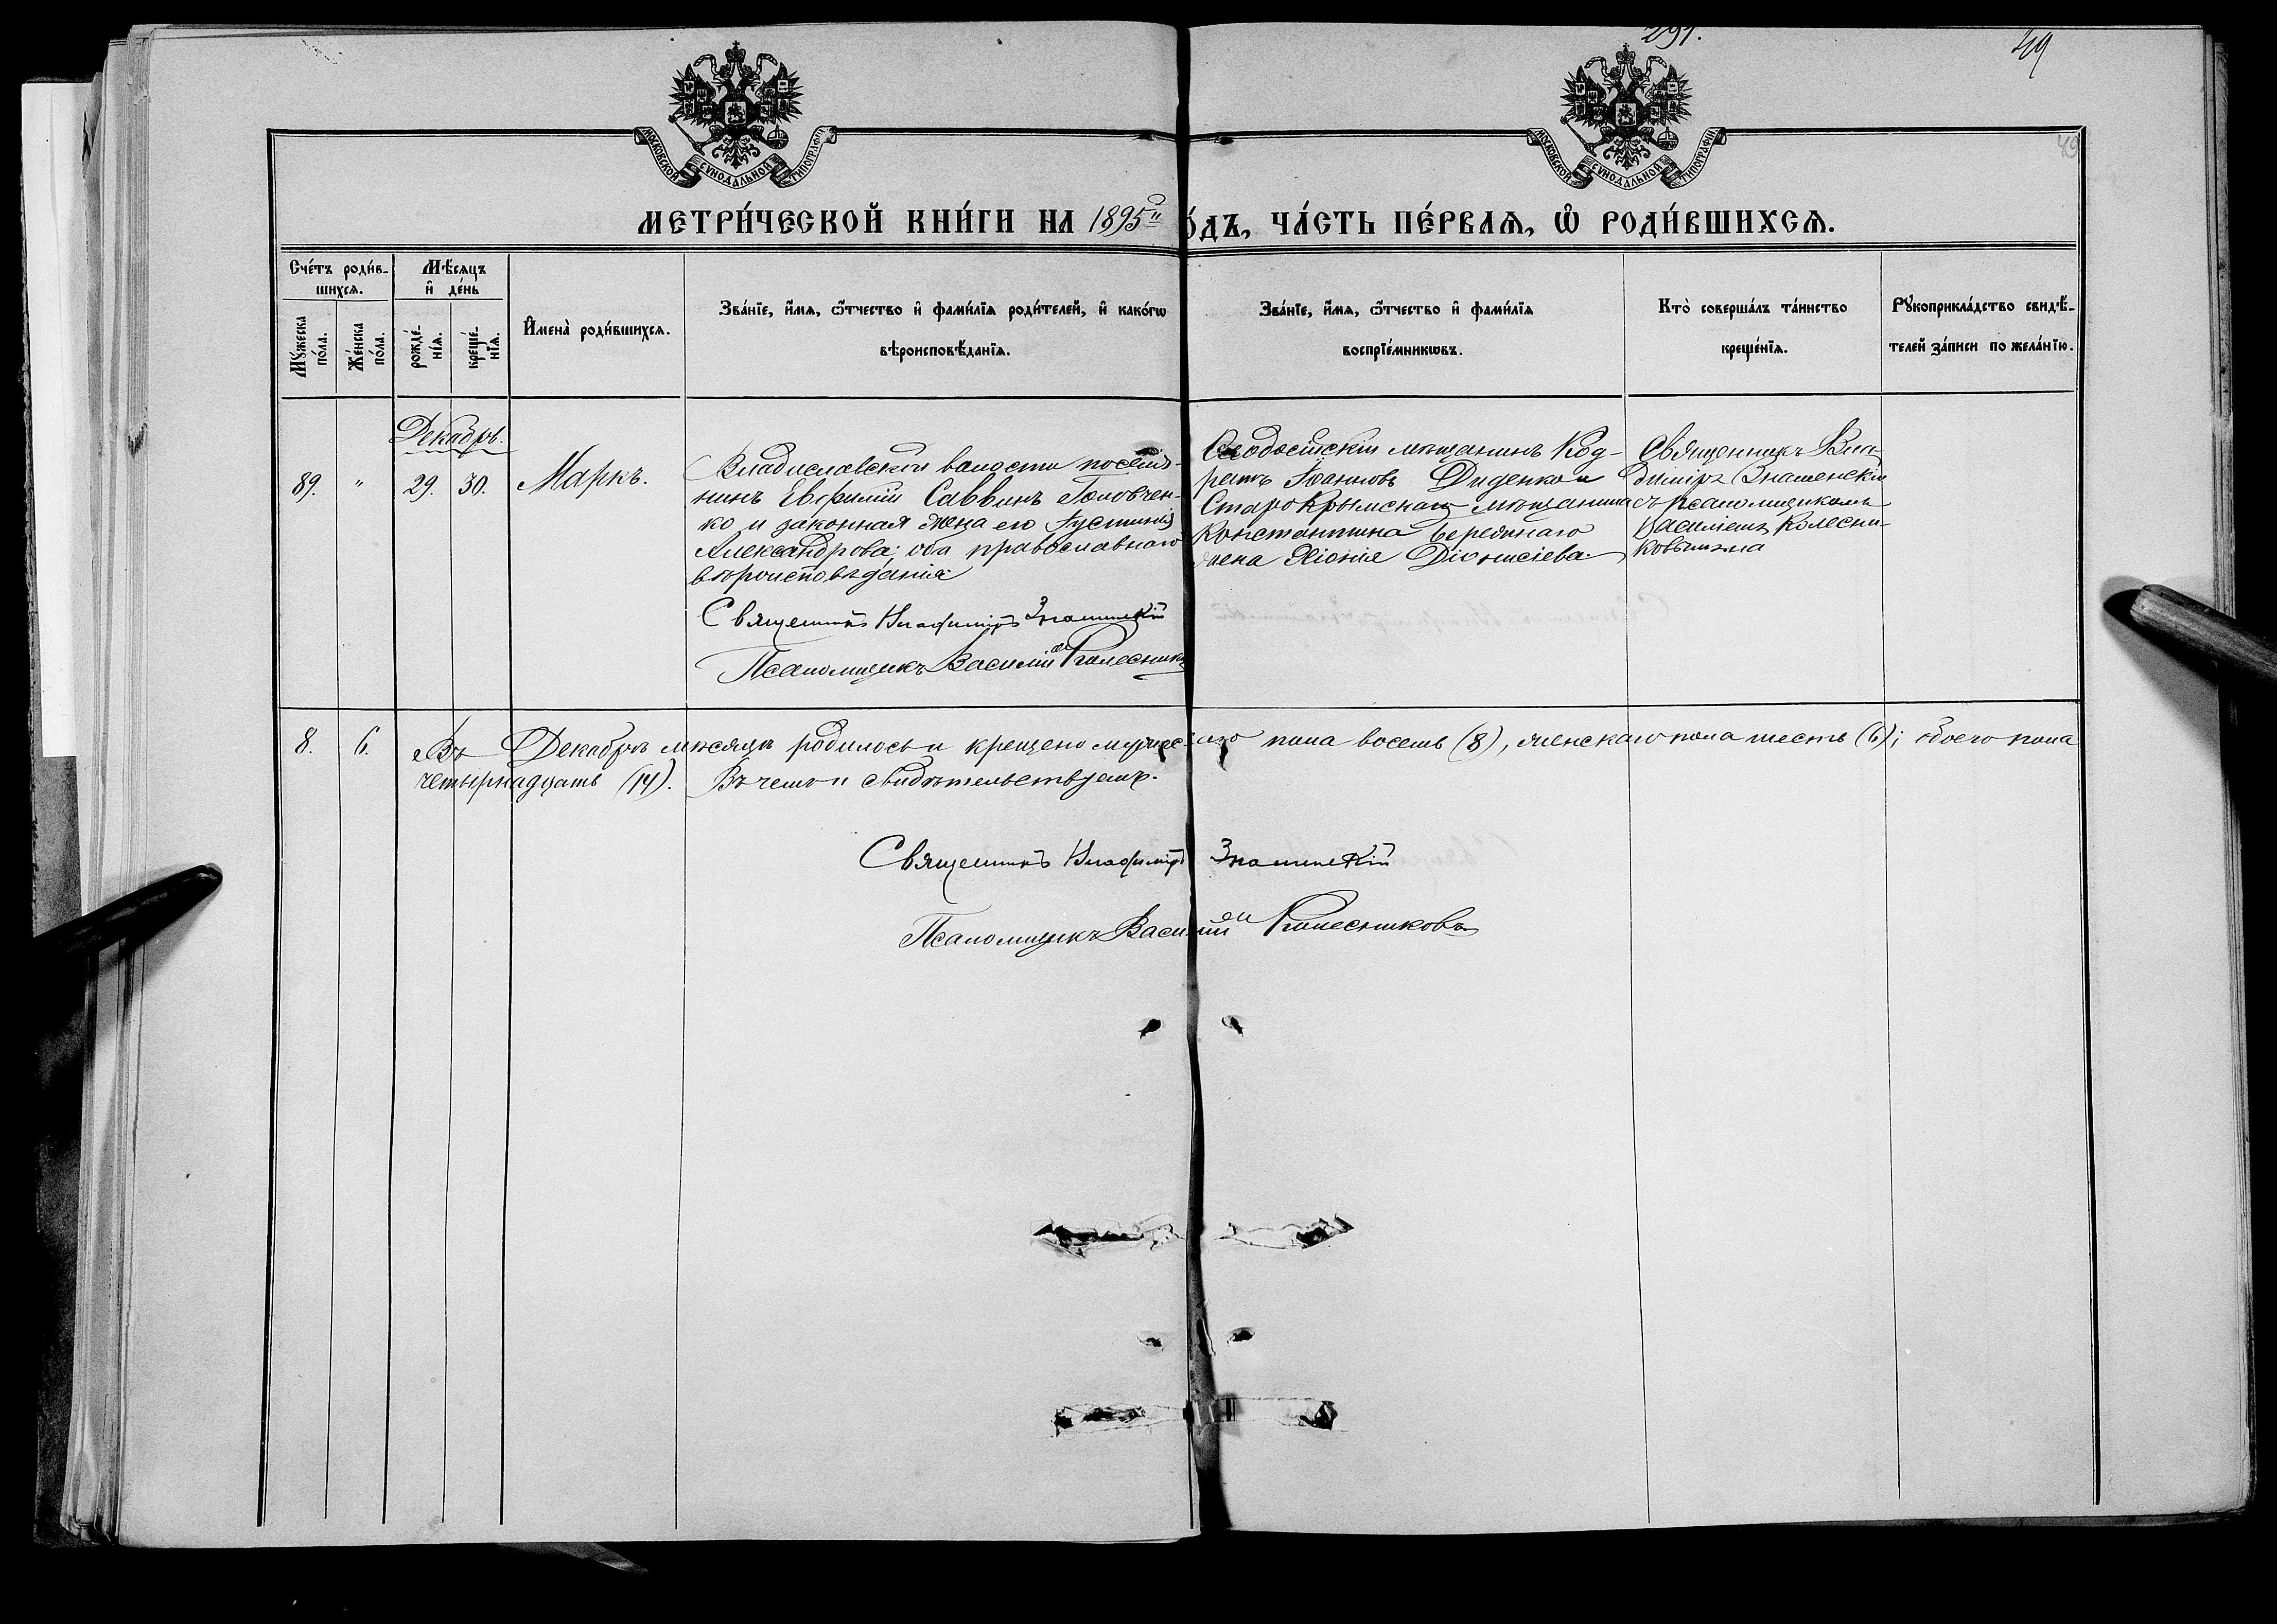 291.
49
49
МОСКОВСКОЙ СѴНОДАЛЬНОЙ ТИПОГРАФІИ
МОСКОВСКОЙ СѴНОДАЛЬНОЙ ТИПОГРАФІИ
МЕТРИ́ЧЕСКОЙ КНИ́ГИ НА 1895й
О́ДЪ, ЧА́СТЬ ПЕ́РВАЯ, Ѡ҆ РОДИ́ВШИХСЯ.
Сче́тъ роди́в-
шихсѧ.
Мꙋ́жеска
по́ла.
Же́нска
по́ла.
Мѣ́сяцъ
и҆ де́нь
рожде́-
нїѧ.
креще́-
нїѧ.
И҆мена̀ роди́вшихсѧ.
Зва́нїе, и҆́мѧ, ѻ҆́тчество и҆ фами́лїѧ роди́телей, и҆ како́гѡ
вѣроисповѣ́данїѧ.
Зва́нїе, и҆́мѧ, ѻ҆́тчество и҆ фами́лїѧ
воспрїе́мникѡвъ.
Кто̀ соверша́лъ та́инство
креще́нїѧ.
Рꙋкоприкла́дство свидѣ́-
телей за́писи по жела́нїю.
Декабрь.
89.
"
29.
30.
Маркъ.
Владиславской волости поселя-
нинъ Евфимій Саввинъ Головчен-
ко и законная жена его Іустинія
Александрова; оба православнаго
вѣроисповѣданія
Священникъ Владиміръ Знаменскій
Псаломщикъ Василій Колесников
Ѳеодосійскій мѣщанинъ Код-
ратъ Іоанновъ Диденко и
Старокрымскаго мѣщанина
Константина Бережнаго
жена Хіонія Діонисіева.
Священникъ Вла-
диміръ Знаменскій
съ псаломщикомъ
Василіемъ Колесни-
ковымъ
8.
6.
Въ Декабрѣ мѣсяцѣ родилось и крещено мужескаго пола восемь (8), женскаго пола шесть (6); обоего пола
четырнадцать (14). Въ чемъ и свидѣтельствуемъ.
Священникъ Владиміръ Знаменскій
Псаломщикъ Василій Колесниковъ